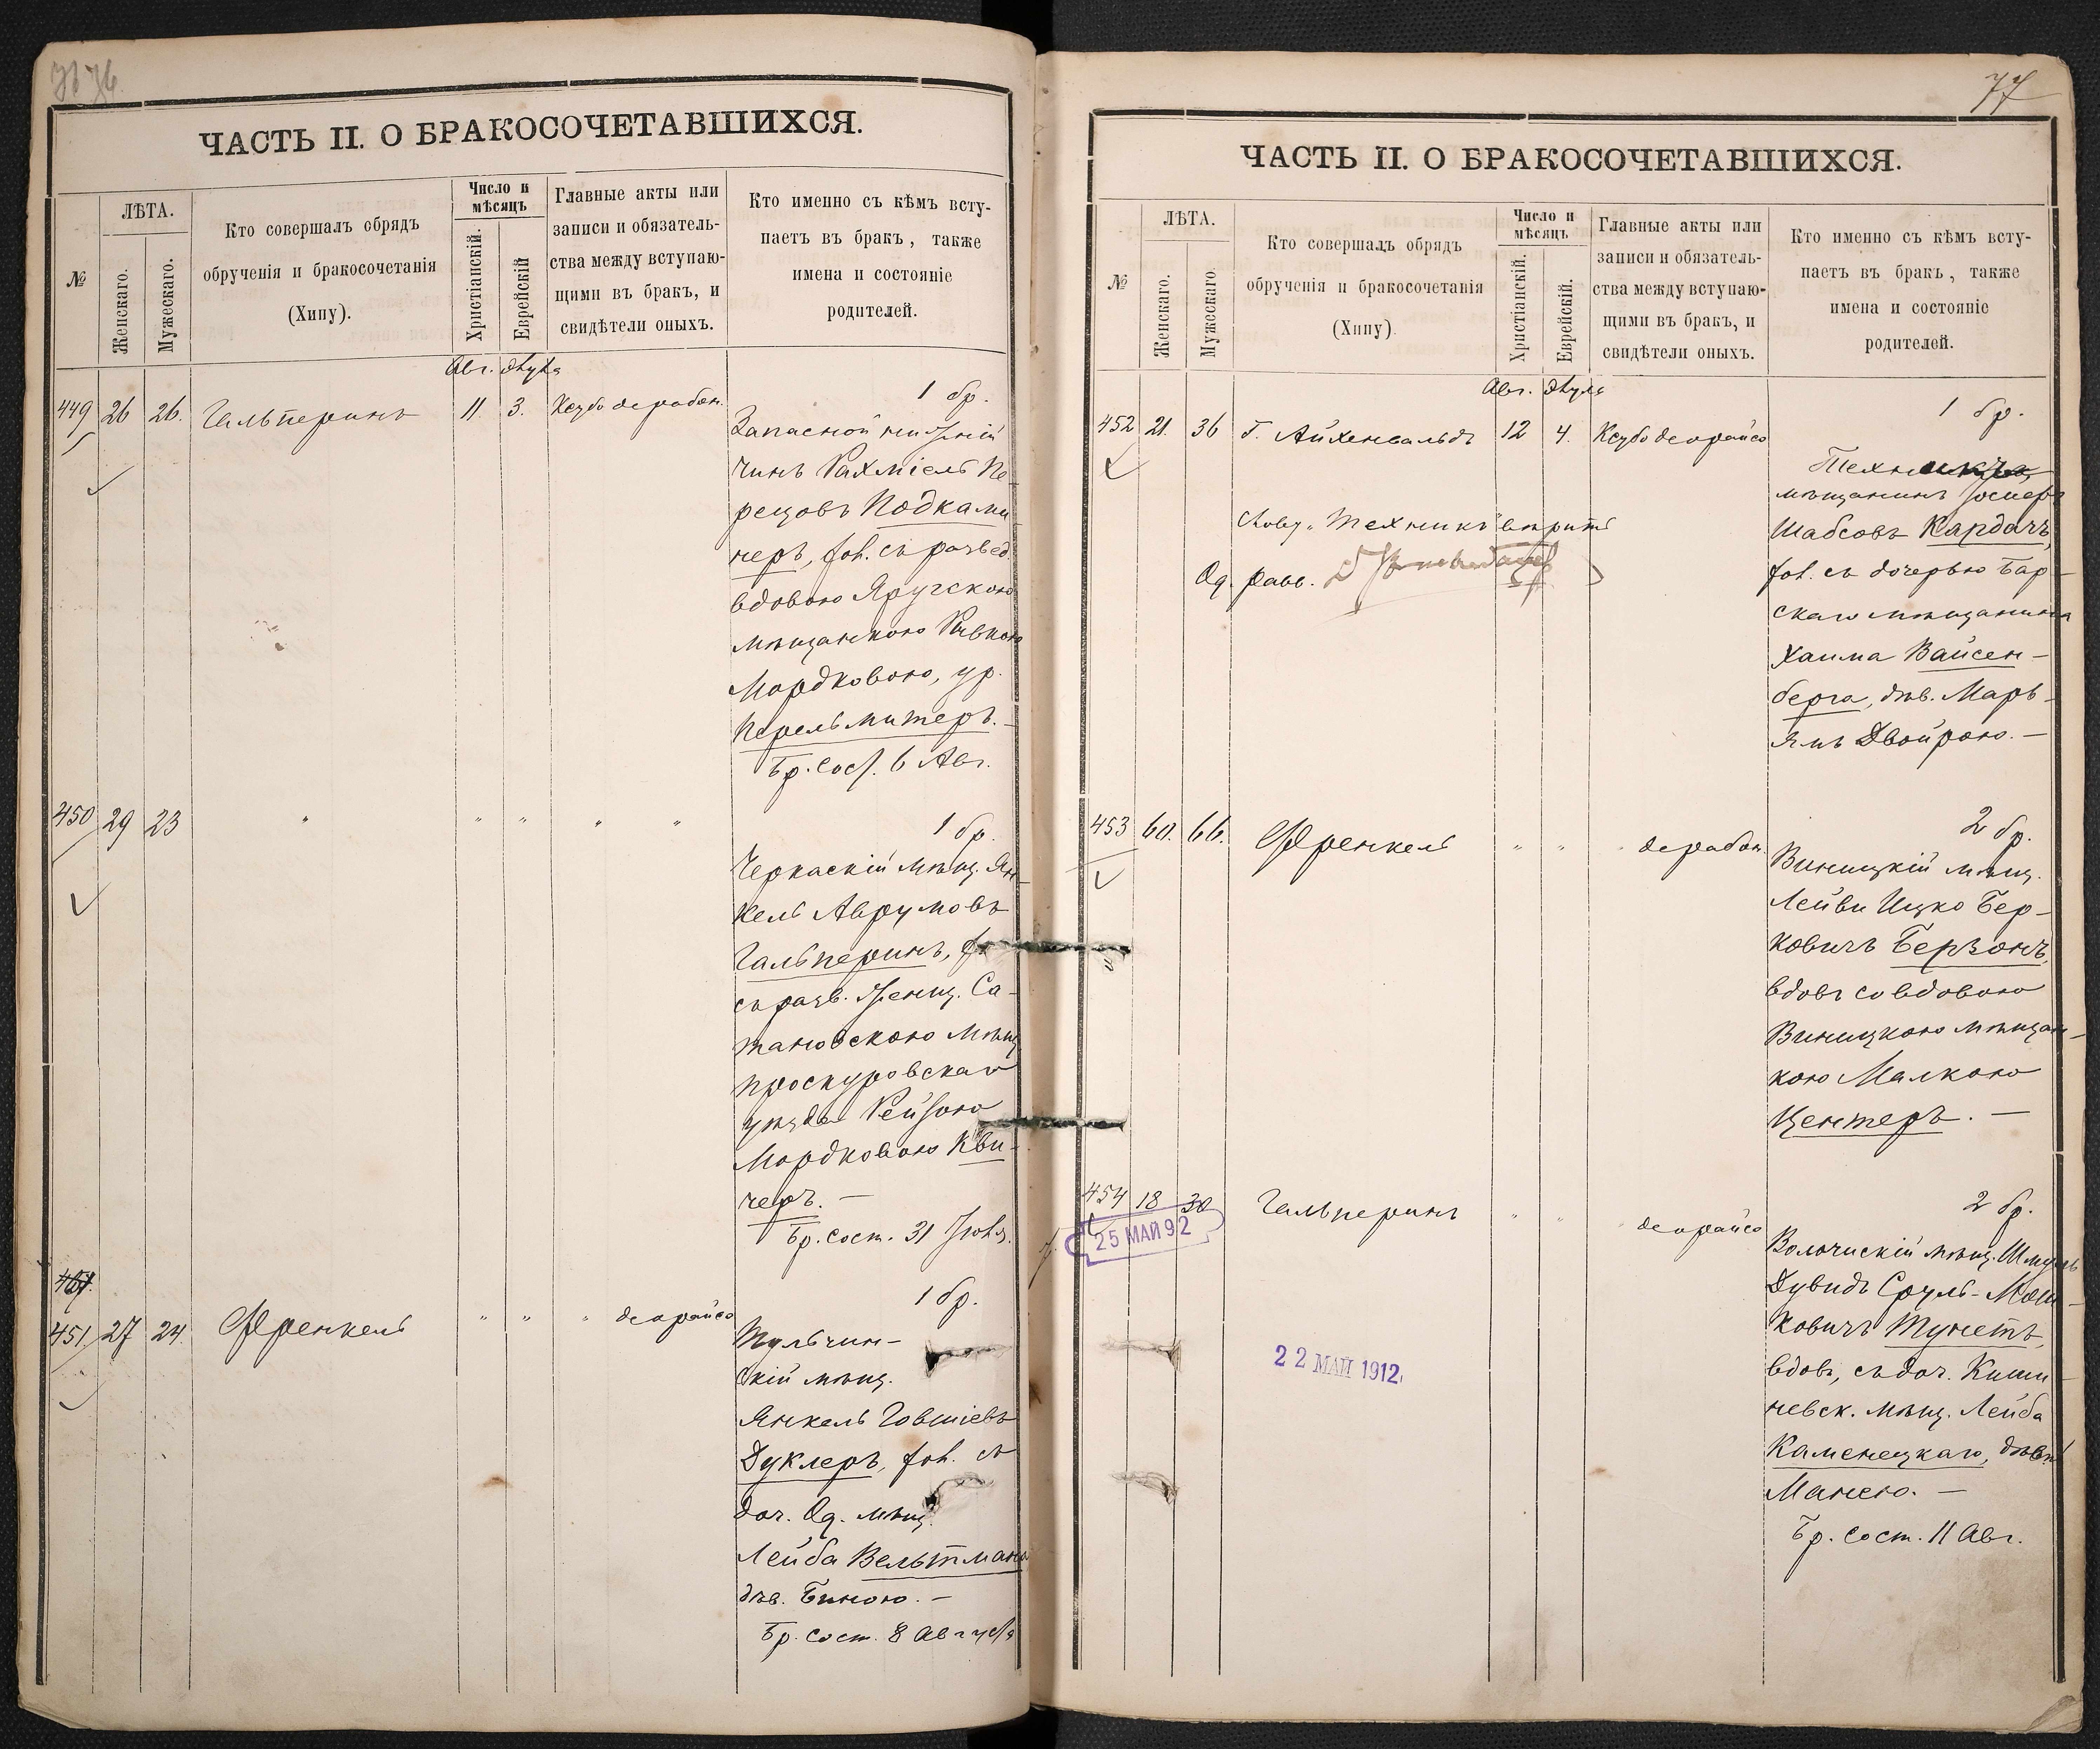 76
ЧАСТЬ II. О БРАКОСОЧЕТАВШИХСЯ.
№
ЛѢТА.
Женскаго.
Мужескаго.
Кто совершалъ обрядъ
обрученія и бракосочетанія
(Хипу).
Число и
мѣсяцъ
Христіанскій.
Еврейскій
Главные акты или
записи и обязатель-
ства между вступаю-
щими въ бракъ, и
свидѣтели оныхъ.
Кто именно съ кѣмъ всту-
паетъ въ бракъ, также
имена и состояніе
родителей.
Авг.
449 26 26. Гальперинъ 11 3. Ксубо дерабон.
1 бр.
Запасной нижній
чинъ Рахміель Пе-
рецовъ Подками-
неръ, хол. съ развед.
вдовою Яругскою
мѣщанкою Ривкою
Мордковою, ур.
Перельмитеръ. –
Бр. сост. 6 Авг.
450 29 23 " " " " "
1 бр.
Черкаскій мѣщ. Ян-
кель Аврумовъ
Гальперинъ,
съ разв. женщ. Са-
тановскою мѣщ.
проскуровскаго
уѣзда Рейзою
Мордковою Кви-
черъ. –
Бр. сост. 31 Іюля.
451. 27 24. Френкель " " " деорайсо
1 бр.
Тульчин-
скій мѣщ.
Янкель Говшіевъ
Дуклеръ, хол. съ
доч. Од. мѣщ.
Лейба Вельтмана
дѣв. Биною. –
Бр. сост. 8 Августа
77
ЧАСТЬ II. О БРАКОСОЧЕТАВШИХСЯ.
№
ЛѢТА.
Женскаго.
Мужескаго
Кто совершалъ обрядъ
обрученія и бракосочетанія
(Хипу).
Число и
мѣсяцъ
Христіанскій.
Еврейскій.
Главные акты или
записи и обязатель-
ства между вступаю-
щими въ бракъ, и
свидѣтели оныхъ.
Кто именно съ кѣмъ всту-
паетъ въ бракъ, также
имена и состояніе
родителей.
Авг.
452 21. 36 Г. Айхенвальдъ 12 4. Ксубо деорайсо
1 бр.
мѣщанинъ
Шабсовъ Кардачъ,
хол. съ дочерью Бар-
скаго мѣщанина
Хаима Вайсен-
берга, дѣв. Марь-
ямъ Двойрою. –
Од. равв.
453 60. 66. Френкель " " " дерабон.
2 бр.
Виницкій мѣщ.
Лейви Ицко Бер-
ковичъ Берзонъ,
вдовъ со вдовою
Виницкою мѣщан-
кою Малкою
Центеръ. –
454 18 30 Гальперинъ " " деорайсо
25 МАЙ 92
22 МАЙ 1912.
2 бр.
Волочискій мѣщ. Шмуль
Дувидъ Сруль-Мош-
ковичъ Тунетъ,
вдовъ, съ доч. Киши-
невск. мѣщ. Лейба
Каменецкаго, дѣв.
Манею. –
Бр. сост. 11 Авг.